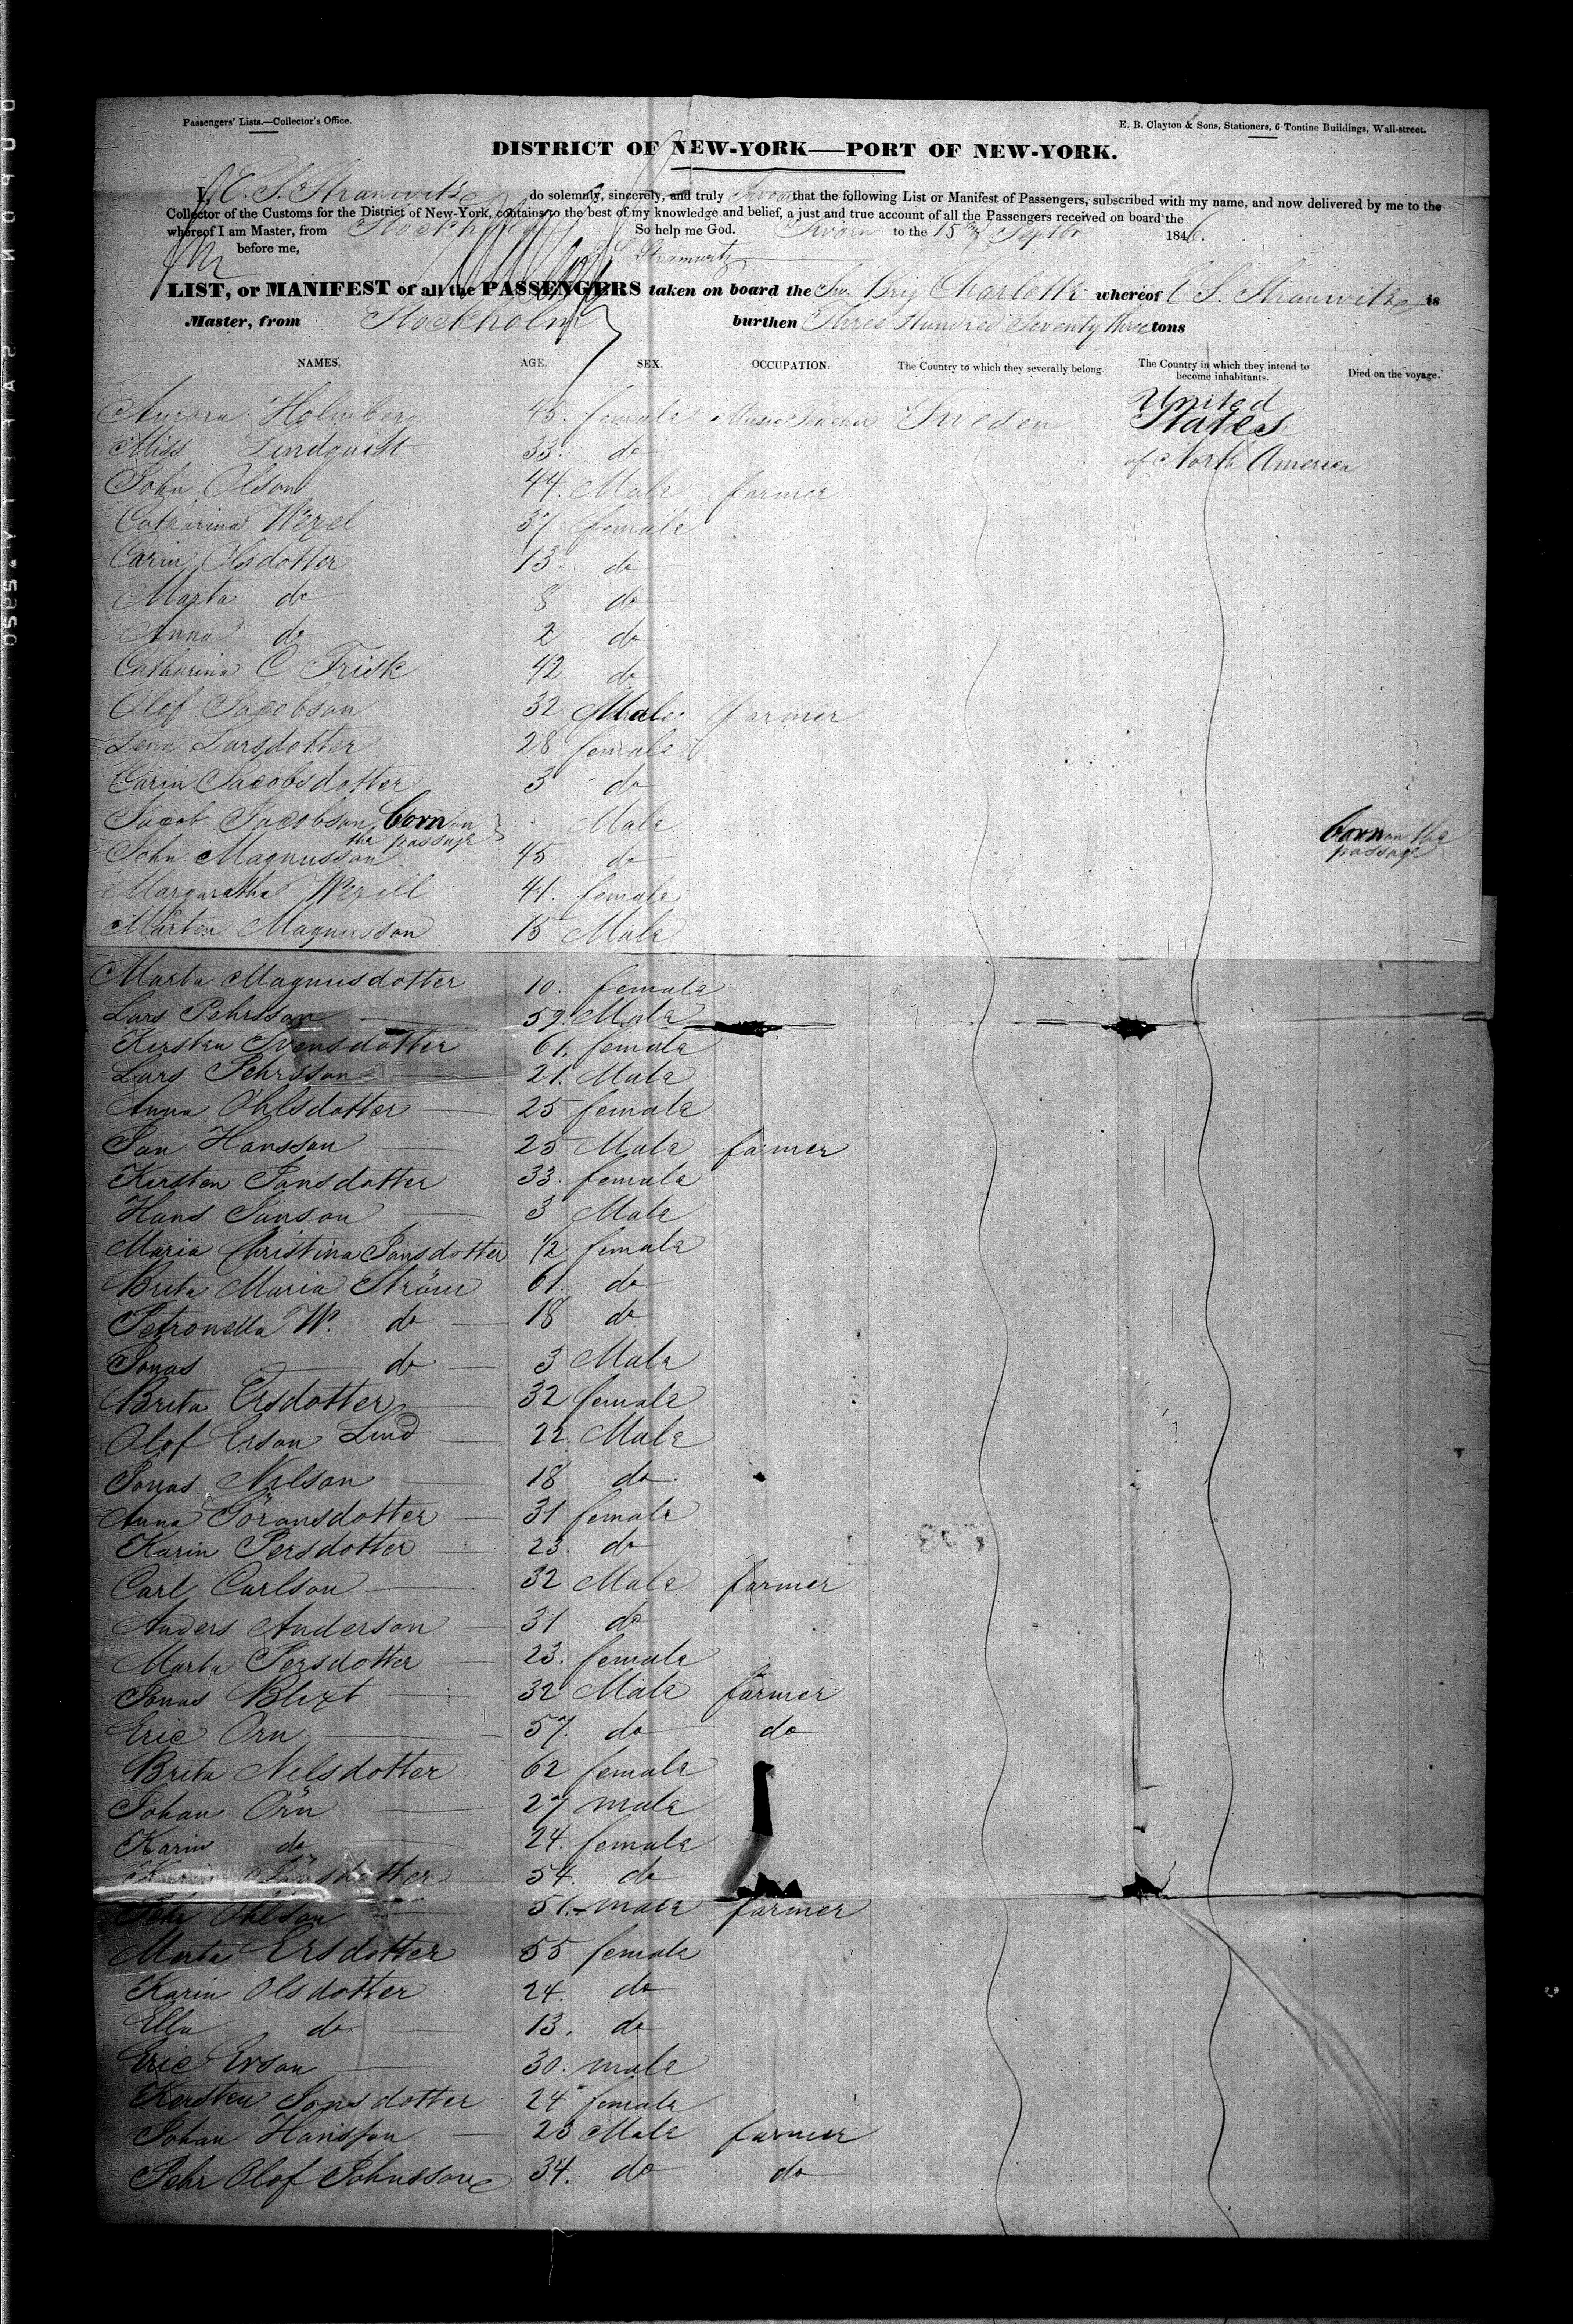 Passengers' Lists.—Collector's Office.
E. B. Clayton & Sons, Stationers, 6 Tontine Buildings, Wall-street.
DISTRICT OF NEW-YORK—PORT OF NEW-YORK.
I, E. S. Stranwitz do solemnly, sincerely, and truly Swear that the following List or Manifest of Passengers, subscribed with my name, and now delivered by me to the
Collector of the Customs for the District of New-York, contains to the best of my knowledge and belief, a just and true account of all the Passengers received on board the
whereof I am Master, from Stockholm So help me God. Sworn to the 15th Septbr 1846.
before me, E. S. Stranwitz
LIST, or MANIFEST of all the PASSENGERS taken on board the Sw. Brig Charlotte whereof E S. Stranwitz is
Master, from Stockholm burthen Three Hundred Seventy three tons
NAMES. AGE. SEX. OCCUPATION. The Country to which they severally belong. The Country in which they intend to become inhabitants. Died on the voyage.
Aurora Holmberg 45. female Music Teacher Sweden United States
Miss Lindquist 33. do of North America
John Olson 44. Male farmer
Catharina Wexel 37 female
Carin Olsdotter 13. do
Marta do 8 do
Anna do 2 do
Catharina C Frisk 42 do
Olof Jacobson 32 Male farmer
Lena Larsdotter 28 female
Carin Jacobsdotter 3 do
Jacob Jacobson born on the passage Male born on the passage
John Magnusson 45 do
Margaretha Wexell 41. female
Mårten Magnusson 15 Male
Marta Magnusdotter 10. female
Lars Pehrsson 59. Male
Kersten Svensdotter 61. female
Lars Pehrsson 21. Male
Anna Ohlsdotter 25 female
Jan Hansson 25 Male farmer
Kersten Jansdotter 33. female
Hans Janson 3 Male
Maria Christina Jansdotter 1/2 female
Brita Maria Ström 61. do
Petronella W. do 18 do
Jonas do 3 Male
Brita Ersdotter 32 female
Olof Erson Lind 22 Male
Jonas Nilson 18 do
Anna Göransdotter 31 female
Karin Persdotter 23. do
Carl Carlson 32 Male farmer
Anders Anderson 31 do
Marta Persdotter 23. female
Jonas Blixt 32 Male farmer
Eric Örn 57. do do
Brita Nelsdotter 62 female
Johan Örn 27 male
Karin do 24. female
Karin Jönsdotter 54. do
Pehr Ohlson 51. male farmer
Marta Ersdotter 55 female
Karin Olsdotter 24. do
Ella do 13. do
Eric Erson 30. male
Kersten Jonsdotter 24 female
Johan Hansson 23 Male farmer
Pehr Olof Johnsson 34. do do